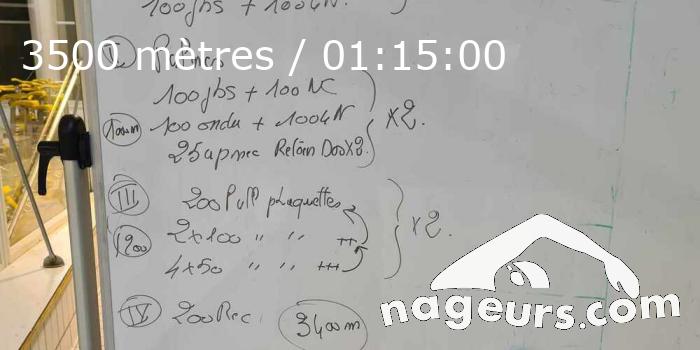 100jbs + 100 4N.
3500 mètres / 01:15:00
II Palmes
100jbs + 100 NC
1000m 100 ondu + 100 4N
x2.
25 apnée Retour Dos x2.
III 200 Pull plaquettes
1200 2x100 " " ++
x2.
4x50 " " +++
IV 200 Rec.
3400m
nageurs.com